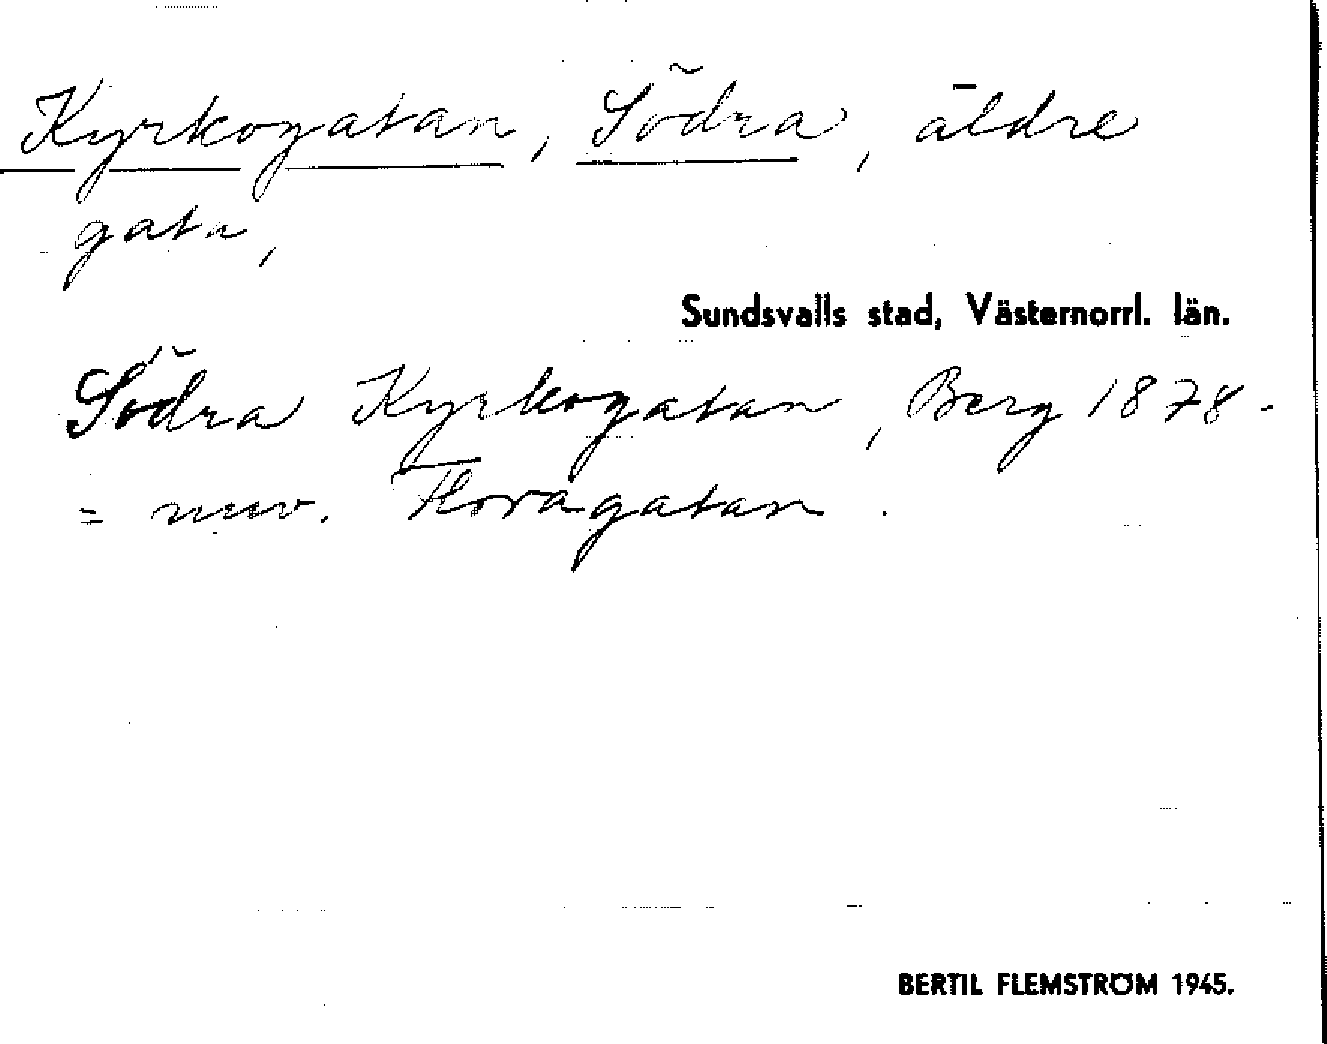 Kyrkogatan, Södra, äldre
gata,
Sundsvalls stad, Västernorrl. län.
Södra Kyrkogatan, Berg 1878 -
= nuv. Floragatan.
BERTIL FLEMSTRÖM 1945.